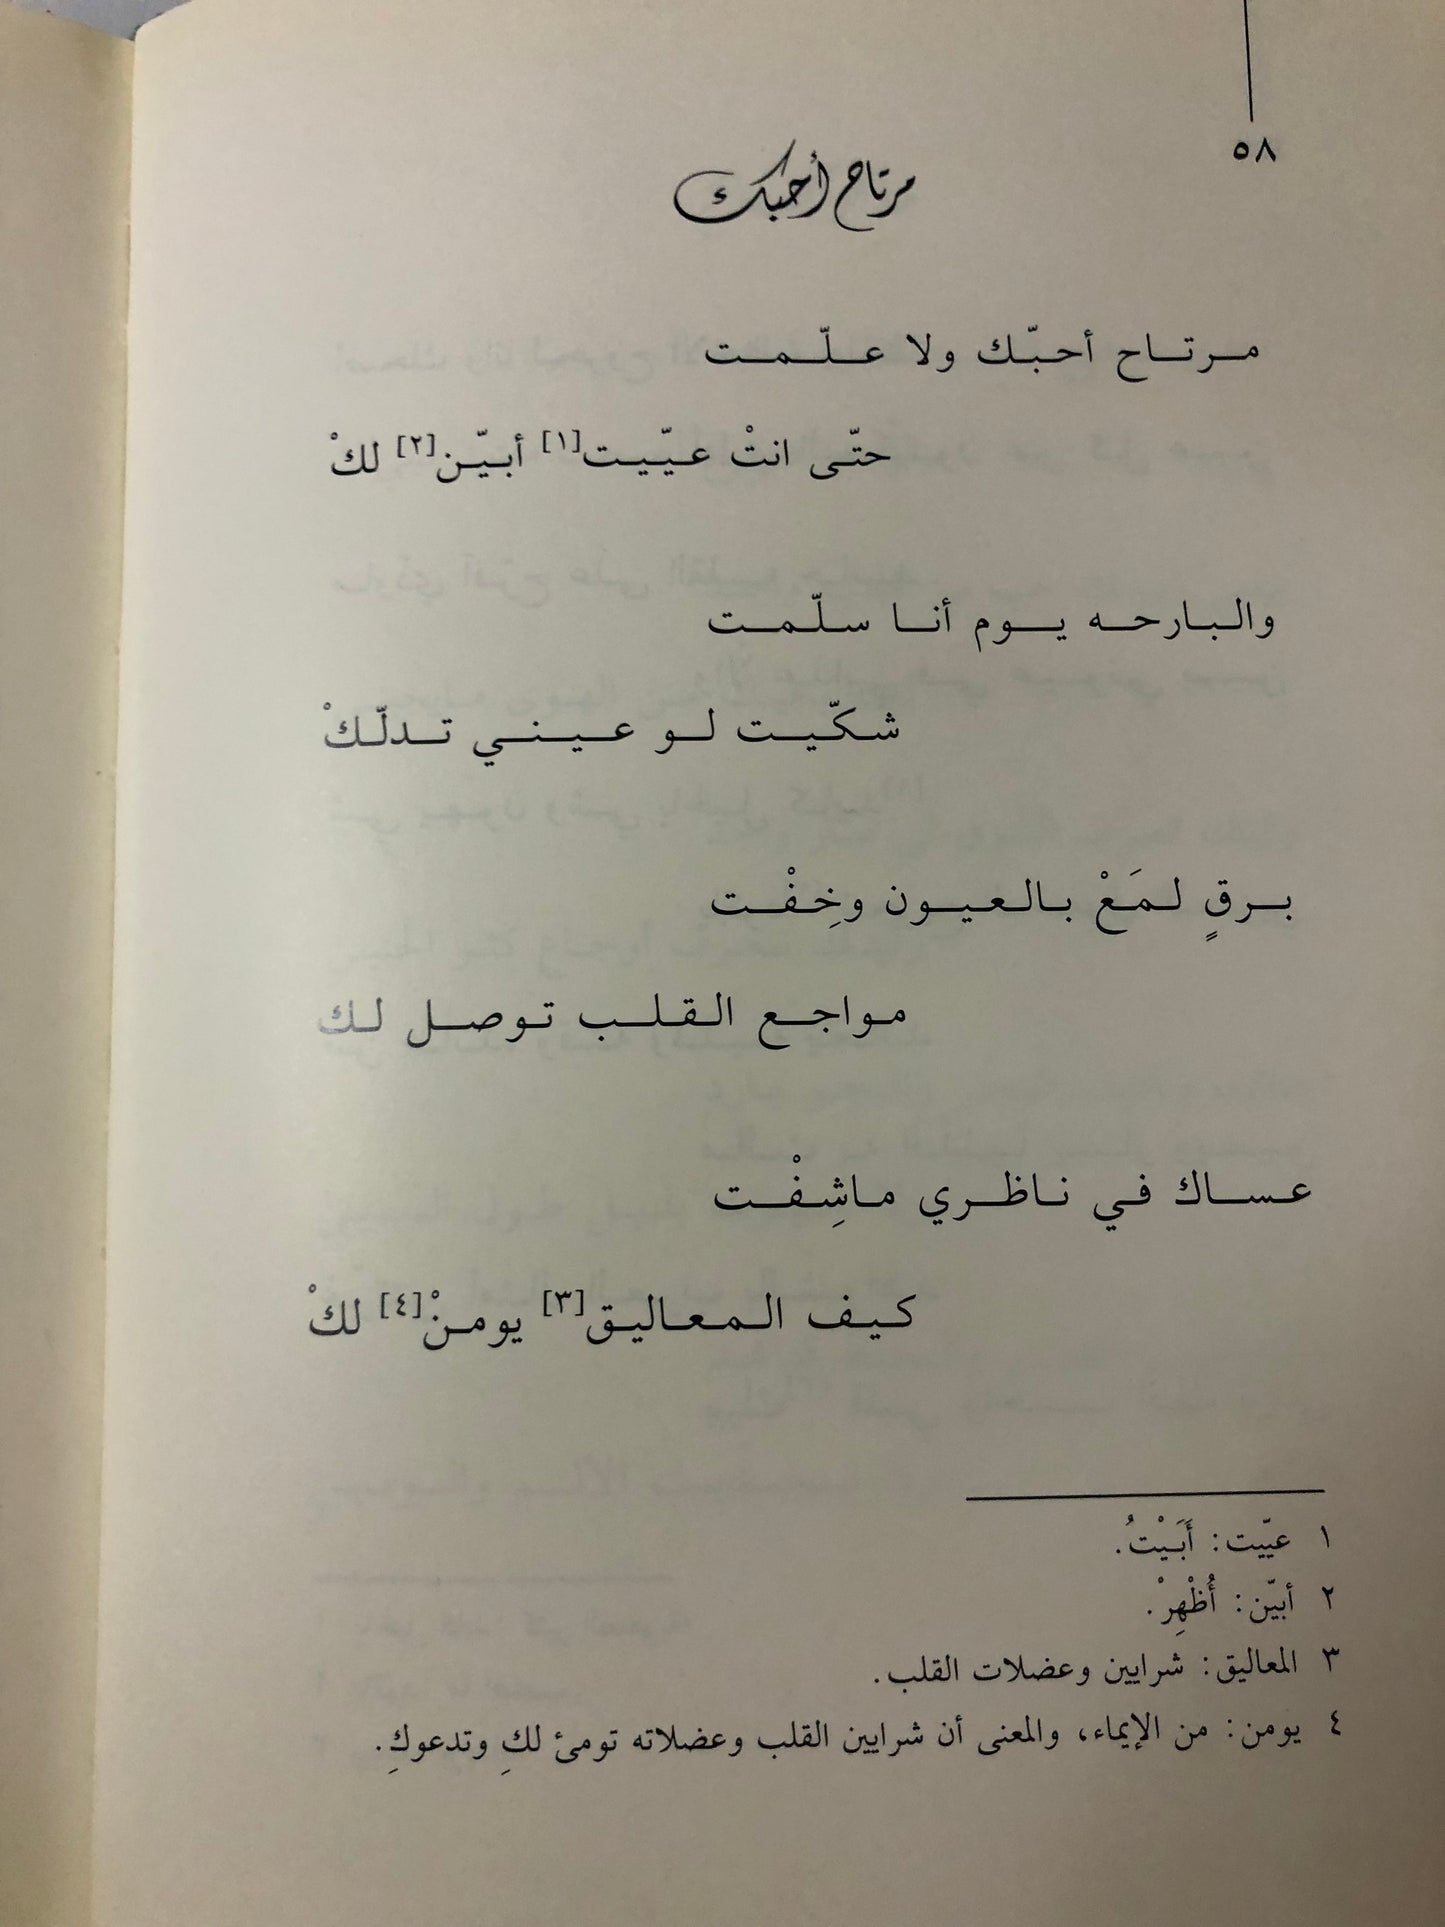 ٥٨
مرتاح أحبك
مرتاح أحبّك ولا علّمت
حتّى انتْ عيّيت[١] أبيّن[٢] لكْ
والبارحه يوم أنا سلّمت
شكّيت لو عيني تدلّكْ
برقٍ لمَعْ بالعيون وخِفْت
مواجع القلب توصل لك
عساك في ناظري ماشِفْت
كيف المعاليق[٣] يومنْ[٤] لكْ
١ عيّيت: أَبَيْتُ.
٢ أبيّن: أُظْهِرْ.
٣ المعاليق: شرايين وعضلات القلب.
٤ يومن: من الإيماء، والمعنى أن شرايين القلب وعضلاته تومئ لكِ وتدعوكِ.